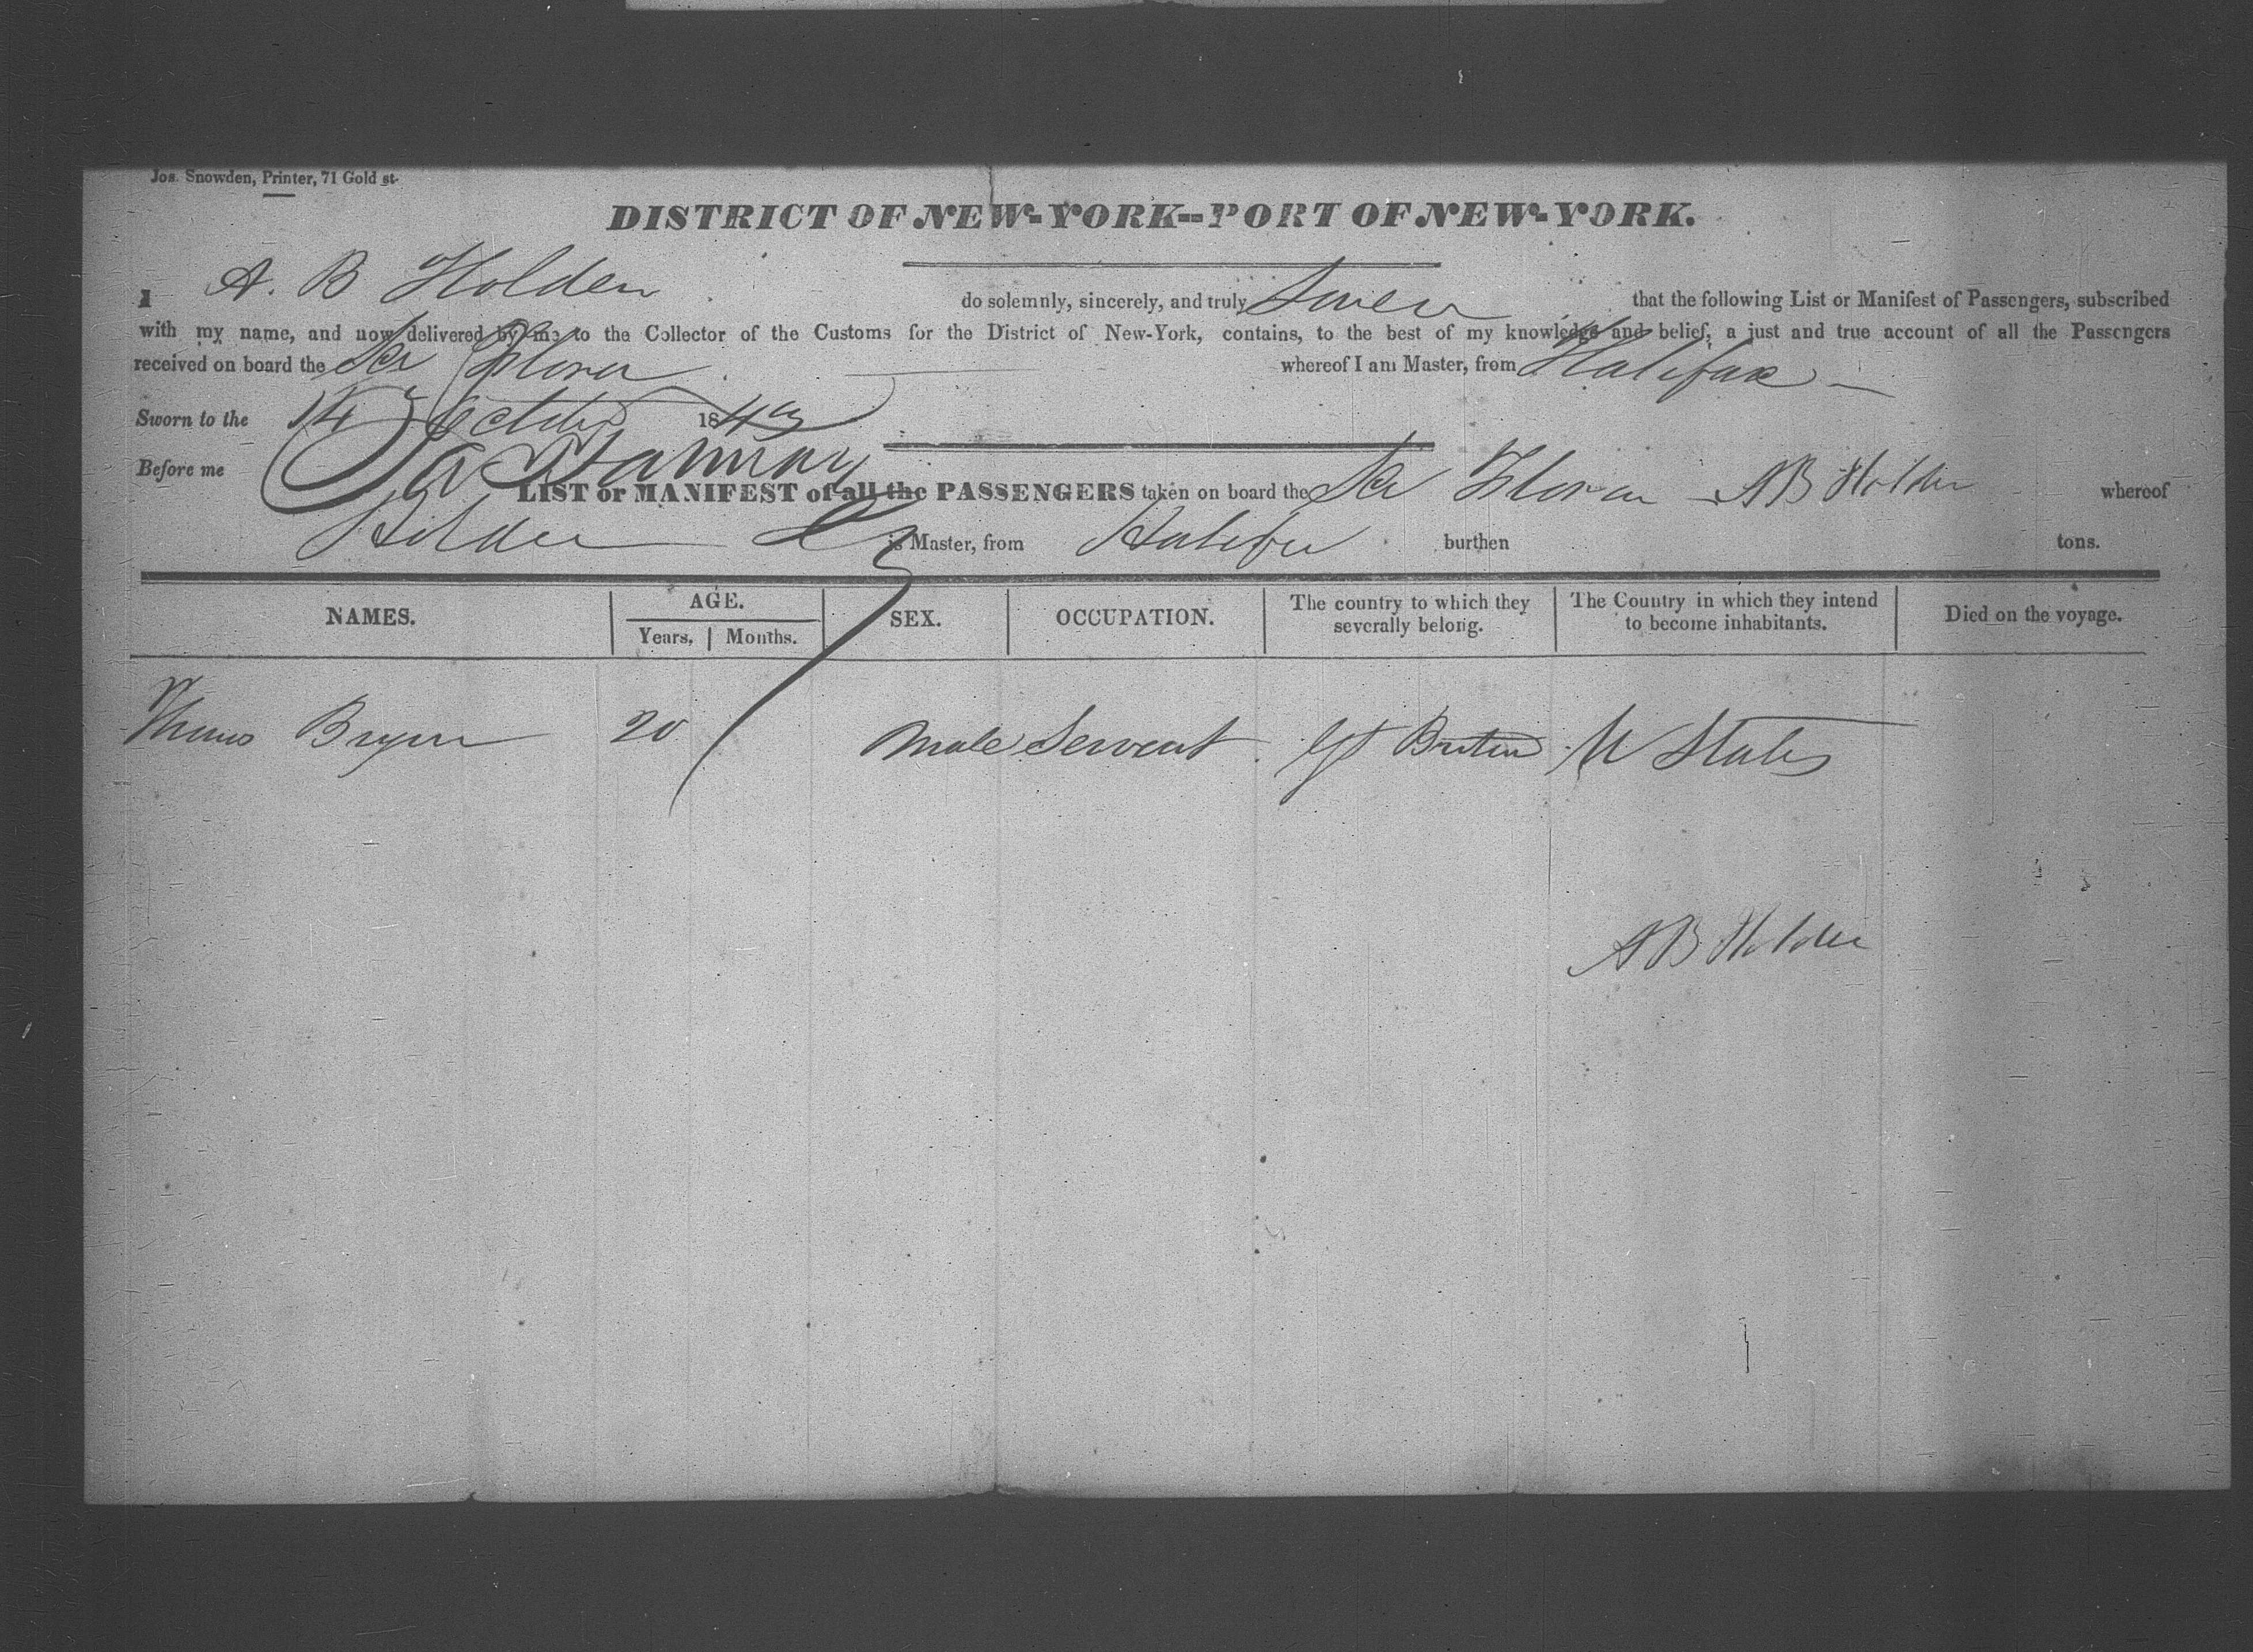 Jos. Snowden, Printer, 71 Gold st.
DISTRICT OF NEW-YORK--PORT OF NEW-YORK.
I A. B Holden do solemnly, sincerely, and truly Swear that the following List or Manifest of Passengers, subscribed
with my name, and now delivered by me to the Collector of the Customs for the District of New-York, contains, to the best of my knowledge and belief, a just and true account of all the Passengers
received on board the Scr Flora whereof I am Master, from Halifax
Sworn to the 14 October 184
Before me
LIST or MANIFEST of all the PASSENGERS taken on board the Scr Flora AB Holden whereof
Holden is Master, from Halifax burthen tons.
NAMES. AGE. Years. Months. SEX. OCCUPATION. The country to which they severally belong. The Country in which they intend to become inhabitants. Died on the voyage.
Thomas 20 Male Servent Gt Britain U States
AB Holden